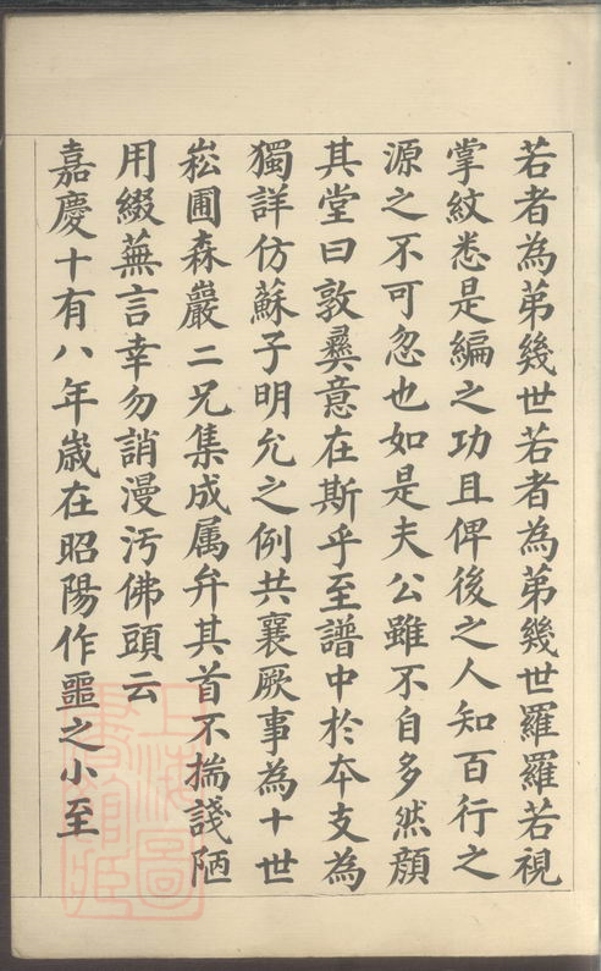 若者為弟幾世若者為弟幾世羅羅若視
掌紋悉是編之功且俾後之人知百行之
源之不可忽也如是夫公雖不自多然顔
其堂曰敦彞意在斯乎至譜中於夲支為
獨詳仿蘇子明允之例共襄厥事為十世
崧圃森巖二兄集成属弁其首不揣諓陋
用綴蕪言幸勿誚漫污佛頭云
嘉慶十有八年歳在昭陽作噩之小至
上海圖
書館藏